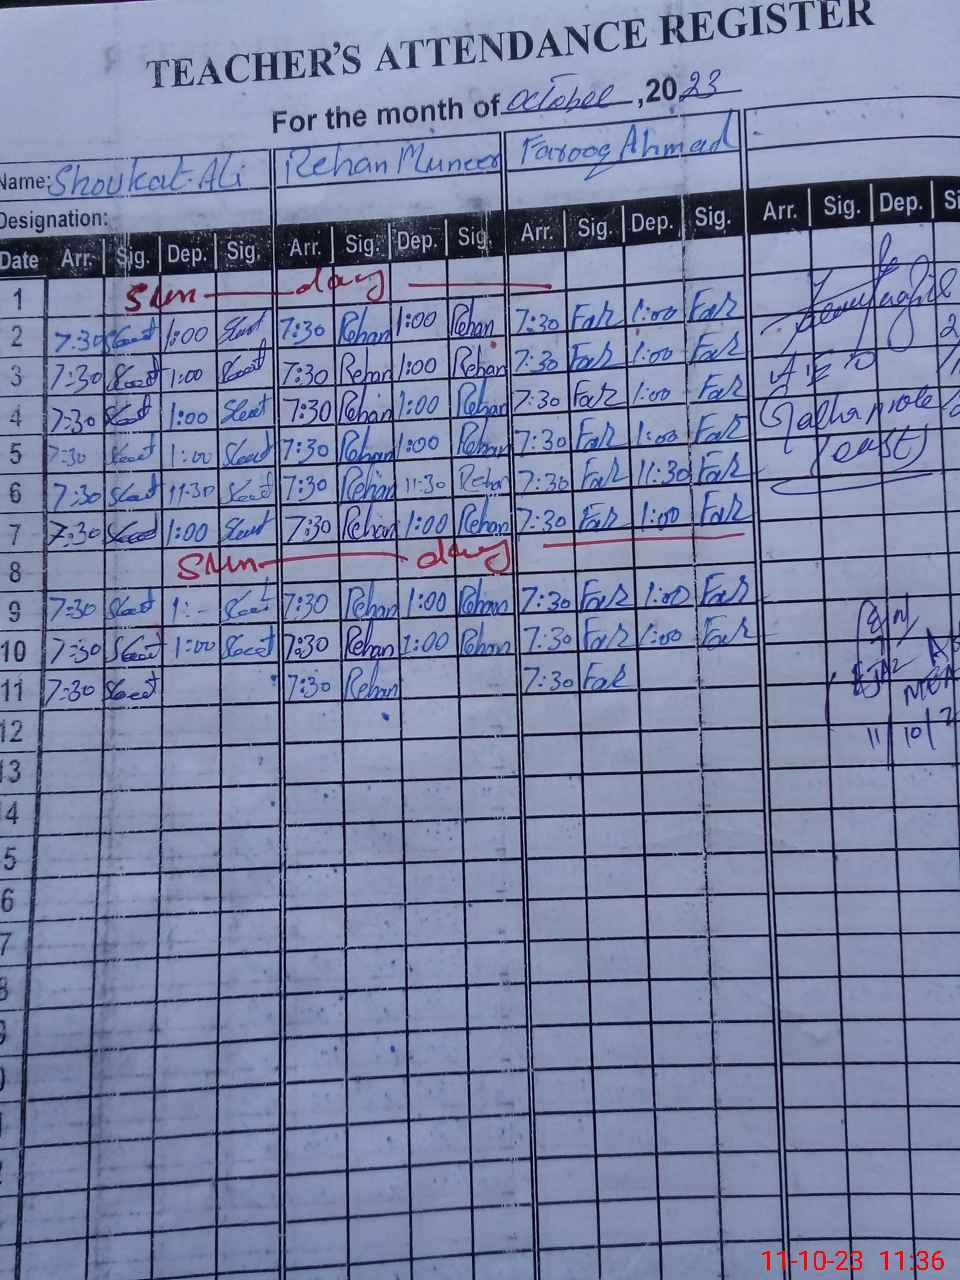 TEACHER'S ATTENDANCE REGISTER
For the month of October, 2023
Name: Shoukat Ali Rehan Muneer Farooq Ahmad
Designation:
Date Arr. Sig. Dep. Sig. Arr. Sig. Dep. Sig. Arr. Sig. Dep. Sig. Arr. Sig. Dep. Si
1 Sun day
2 7:30 1:00 7:30 Rehan 1:00 Rehan 7:30 Far 1:00 Far
3 7:30 1:00 7:30 Rehan 1:00 Rehan 7:30 Far 1:00 Far
4 7:30 1:00 7:30 Rehan 1:00 Rehan 7:30 Far 1:00 Far
5 7:30 1:00 7:30 Rehan 1:00 Rehan 7:30 Far 1:00 Far
6 7:30 11:30 7:30 Rehan 11:30 Rehan 7:30 Far 11:30 Far
7 7:30 1:00 7:30 Rehan 1:00 Rehan 7:30 Far 1:00 Far
8 Sun day
9 7:30 1:- 7:30 Rehan 1:00 Rehan 7:30 Far 1:00 Far
10 7:30 1:00 7:30 Rehan 1:00 Rehan 7:30 Far 1:00 Far
11 7:30 7:30 Rehan 7:30 Far
AEO
(east)
11/10/2
12
13
14
5
6
7
8
9
0
1
2
11-10-23 11:36